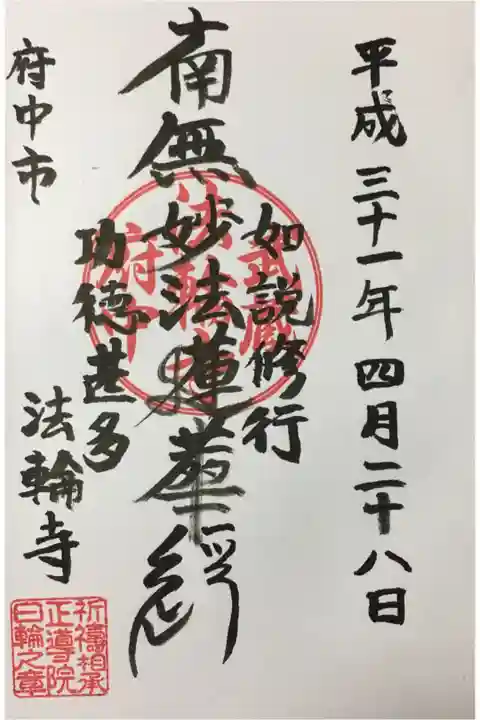 平成三十一年四月二十八日
如説修行
南無妙法蓮華經
功徳甚多
府中市
法輪寺
武蔵
法輪寺
府中
祈祷相承
正導院
日輪之章